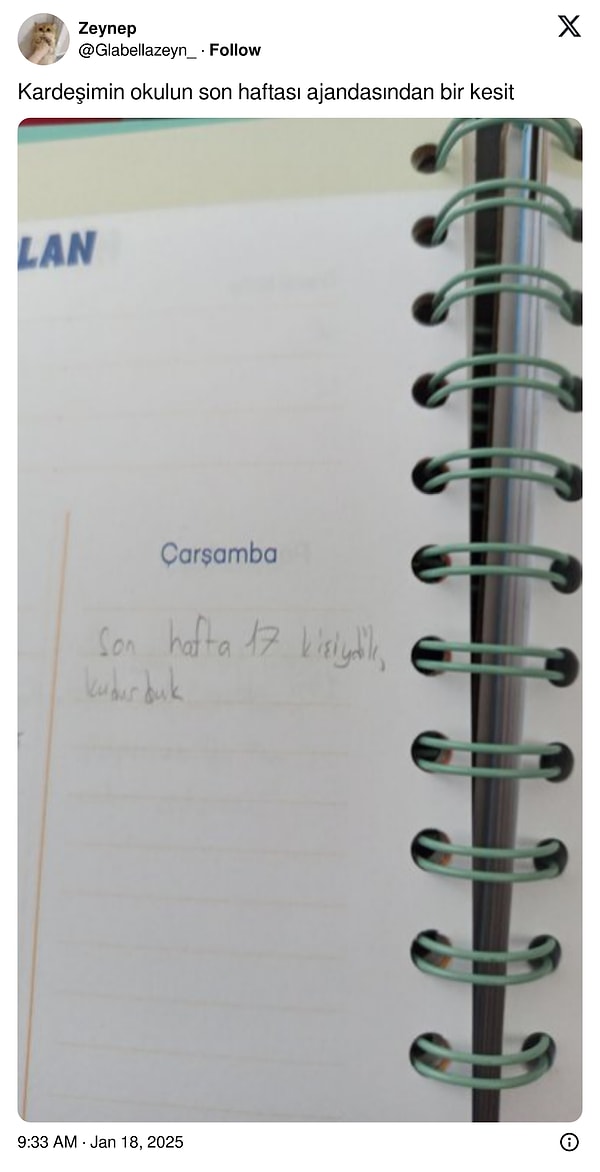 Zeynep
@Glabellazeyn_ · Follow
Kardeşimin okulun son haftası ajandasından bir kesit
LAN
Çarşamba
Son hafta 17 kişiydik,
kudurduk
9:33 AM · Jan 18, 2025